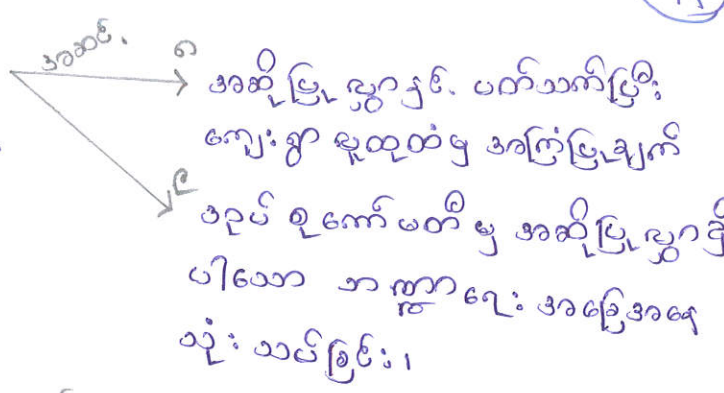 အဆင့်
၈ အဆိုပြုလွှာနှင့် ပတ်သက်ပြီး
ကျေးရွာ လူထုထံမှ အကြံပြုချက်
၉ အုပ်စုကော်မတီမှ အဆိုပြုလွှာ၌
ပါသော ဘဏ္ဍာရေး အခြေအနေ
သုံးသပ်ခြင်း၊